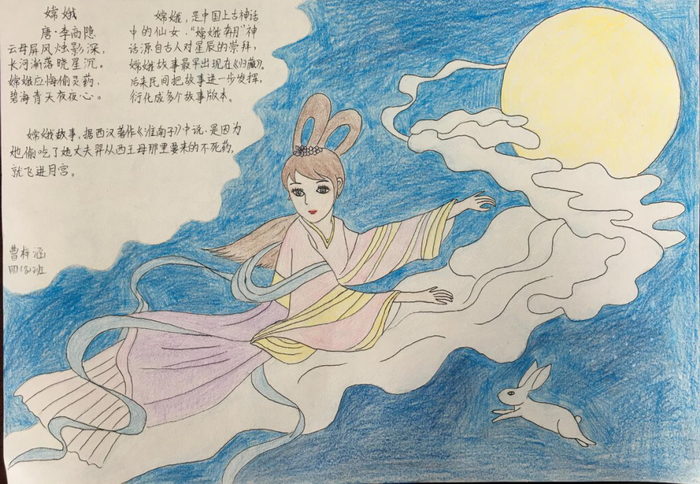 嫦娥
唐·李商隐
云母屏风烛影深，
长河渐落晓星沉。
嫦娥应悔偷灵药，
碧海青天夜夜心。
嫦娥，是中国上古神话
中的仙女，“嫦娥奔月”神
话源自古人对星辰的崇拜，
嫦娥故事最早出现在《归藏》。
后来民间把故事进一步发挥，
衍化成多个故事版本。
嫦娥故事，据西汉著作《淮南子》中说，是因为
她偷吃了她丈夫羿从西王母那里要来的不死药，
就飞进月宫。
曹梓涵